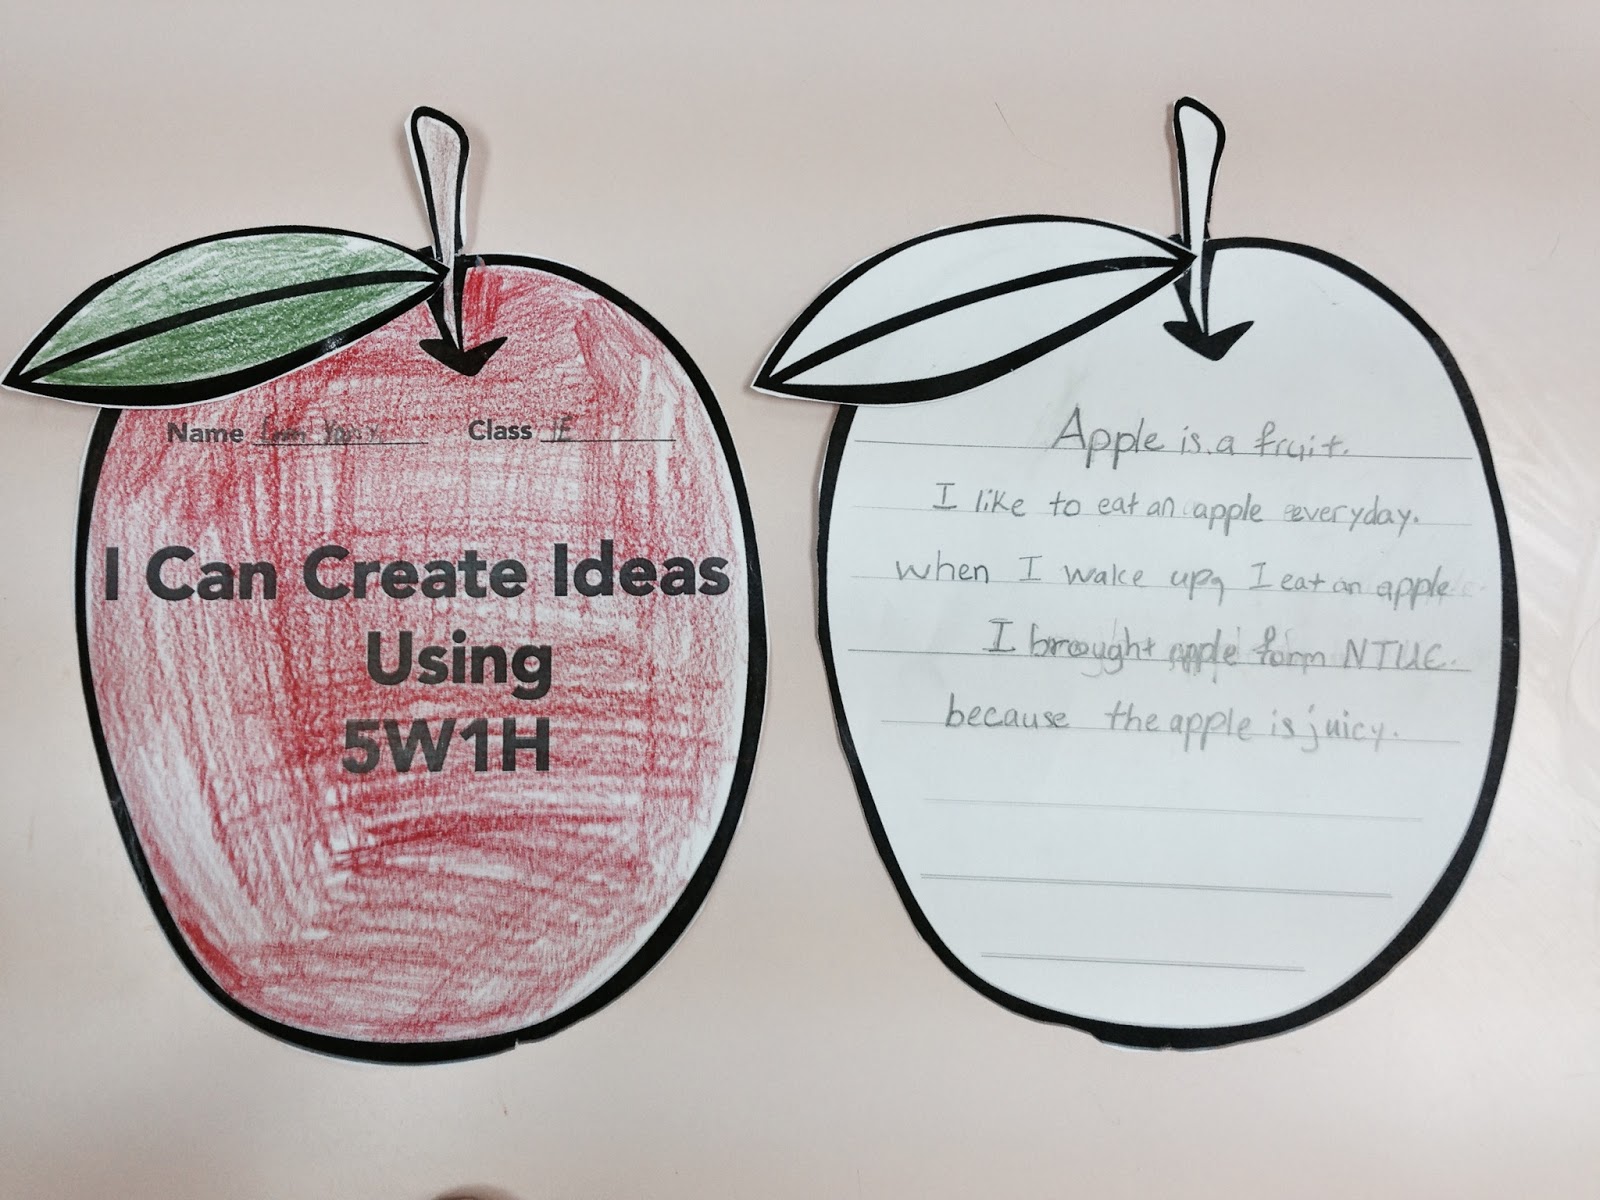 Name Class 1E
I Can Create Ideas
Using
5W1H
Apple is a fruit.
I like to eat an apple everyday.
when I wake up, I eat an apple
I brought apple form NTUC.
because the apple is juicy.